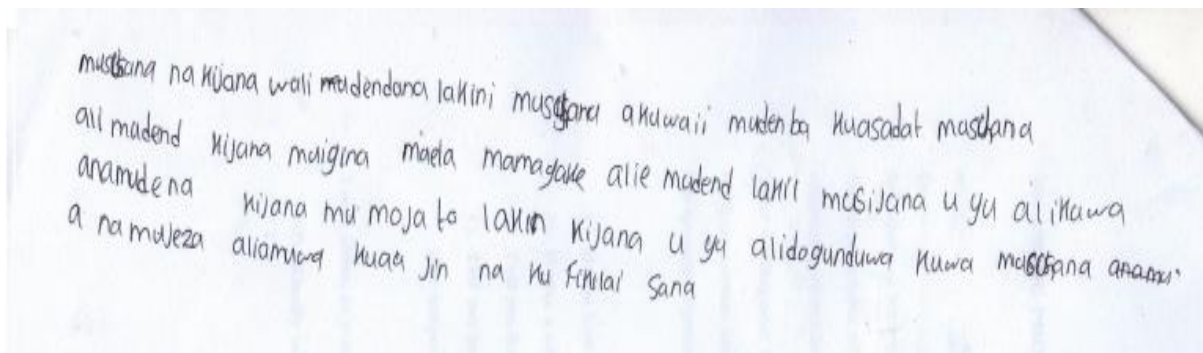 musichana na kijana wali mudendana lakini musichana akuwaii mudenba kuasadat musichana
ali mudend kijana muigina maela mamagake alie mudend lakil musijana u yu alikuwa
anamudena kijana mu moja to lakin kijana u yu alidogunduwa kuwa musichana anamu
a na mujeza aliamuwa kuaa jin na ku fikilai sana